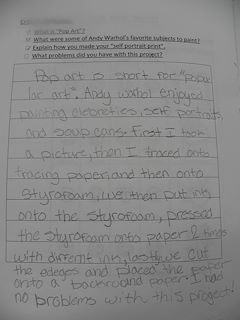 What is "Pop Art"?
What were some of Andy Warhol's favorite subjects to paint?
Explain how you made your "self portrait print".
What problems did you have with this project?
Pop art is short for "popu
lar art". Andy warhol enjoyed
painting celebreties, self portraits,
and soup cans. First I took
a picture, then I traced onto
tracing paper, and then onto
styrofoam, we then put ink
onto the styrofoam, pressed
the styrofoam onto paper 2 times
with differnt ink, lastly we cut
the edeges and placed the paper
onto a backround paper. I had
no problems with this project!